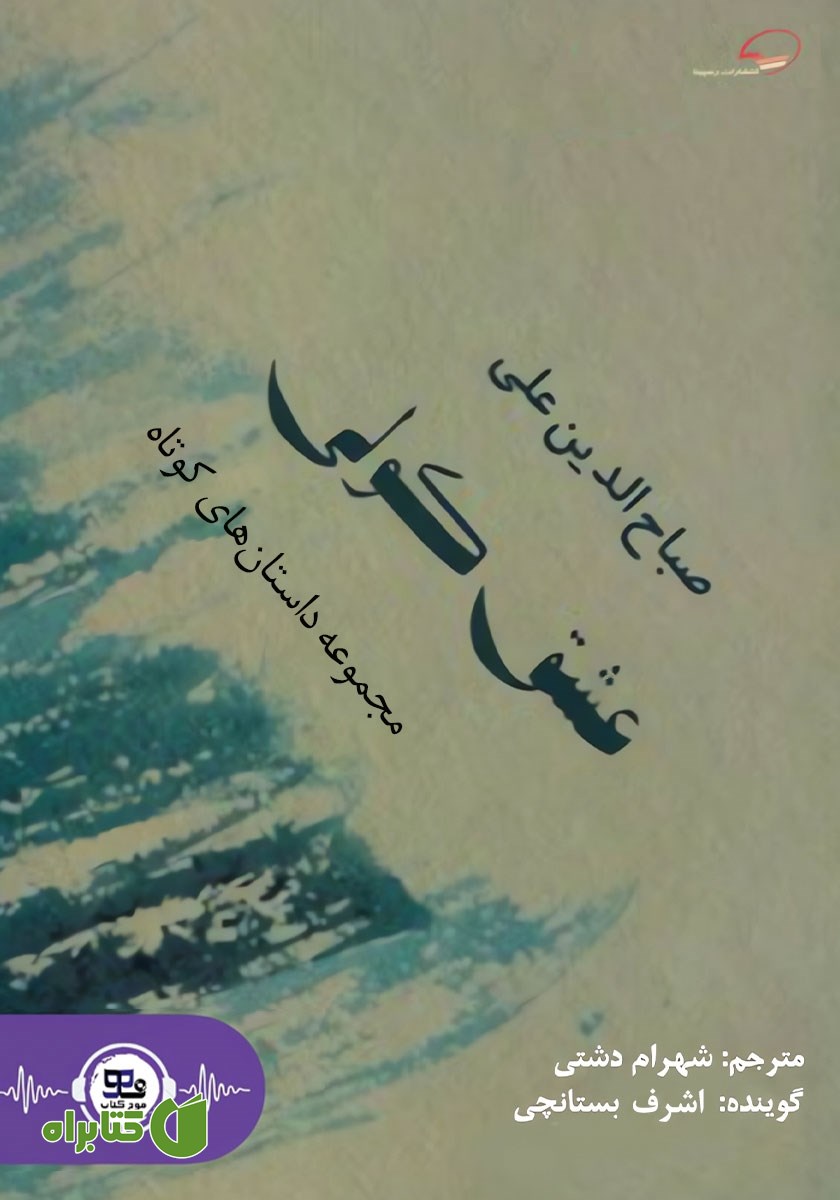 انتشارات رسپینا
صباح‌الدین علی
عشق کولی
مجموعه داستان‌های کوتاه
مترجم: شهرام دشتی
گوینده: اشرف بستانچی
موج کتاب
کتابراه